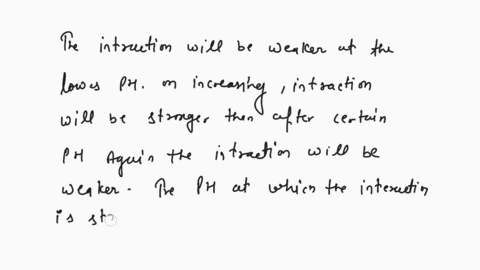 The intraction will be weaker at the
lowes PH. on increasing, intraction
will be stronger then after certain
PH Again the intraction will be
weaker. The PH at which the interaction
is st